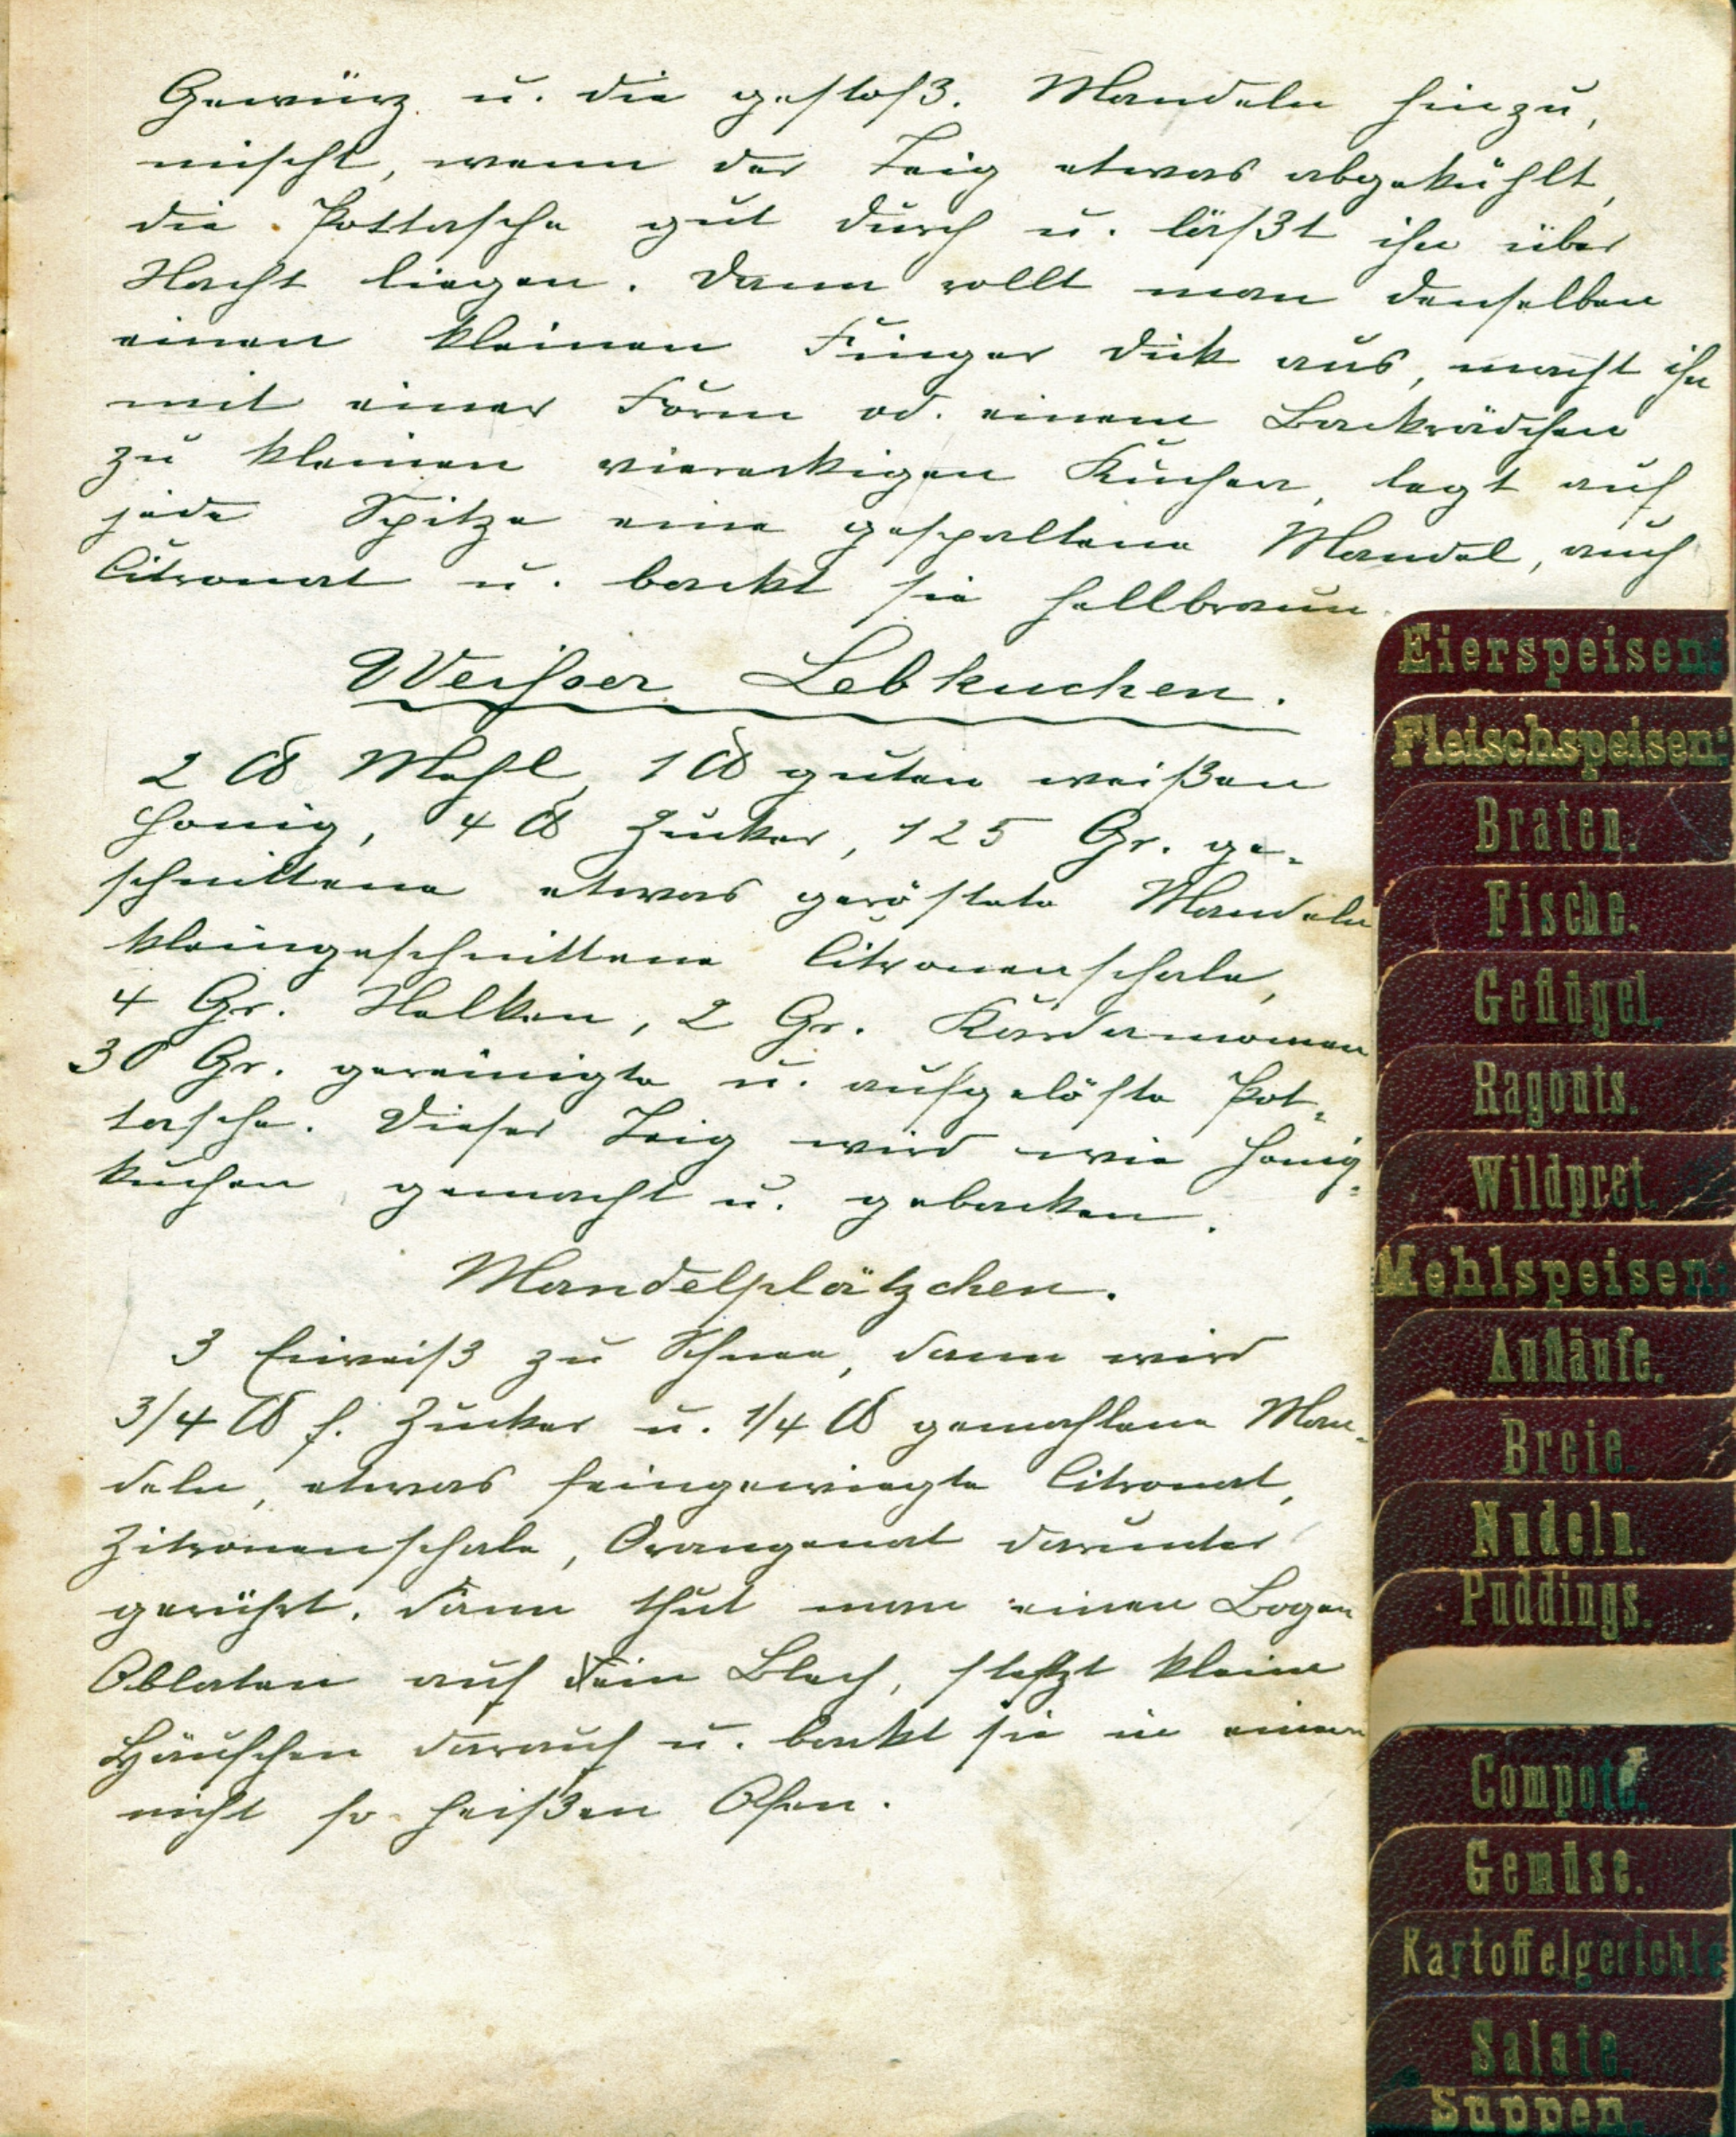 Gewürz u. die gestoß. Mandeln hinzu,
mischt, wenn der Teig etwas abgekühlt,
die Pottasche gut durch u. läßt ihn über
Nacht liegen. Dann rollt man denselben
einen kleinen Finger dick aus, macht ihn
mit einer Form od. einem Backrädchen
zu kleinen viereckigen Kuchen, legt auf
jede Spitze eine gespaltene Mandel, auch
Citronat u. backt sie hellbraun.
Weisser Lebkuchen.
2 ℔ Mehl, 1 ℔ guten weißen
Honig, 4 ℔ Zucker, 125 Gr. ge-
schnittene etwas geröstete Mandeln
kleingeschnittene Citronenschale,
4 Gr. Nelken, 2 Gr. Kardamomen
30 Gr. gereinigte u. aufgelöste Pot-
tasche. Dieser Teig wird wie Honig-
kuchen gemacht u. gebacken.
Mandelplätzchen.
3 Eiweiß zu Schnee, dann wird
3/4 ℔ f. Zucker u. 1/4 ℔ gemahlene Man-
deln, etwas feingewiegte Citronat,
Zitronenschale, Orangenat darunter
gerührt. Dann thut man einen Bogen
Oblaten auf ein Blech, setzt kleine
Häufchen darauf u. backt sie in einem
nicht so heißen Ofen.
Eierspeisen:
Fleischspeisen:
Braten.
Fische.
Geflügel.
Ragouts.
Wildpret.
Mehlspeisen:
Aufläufe.
Breie.
Nudeln.
Puddings.
Compote.
Gemüse.
Kartoffelgerichte
Salate.
Suppen.